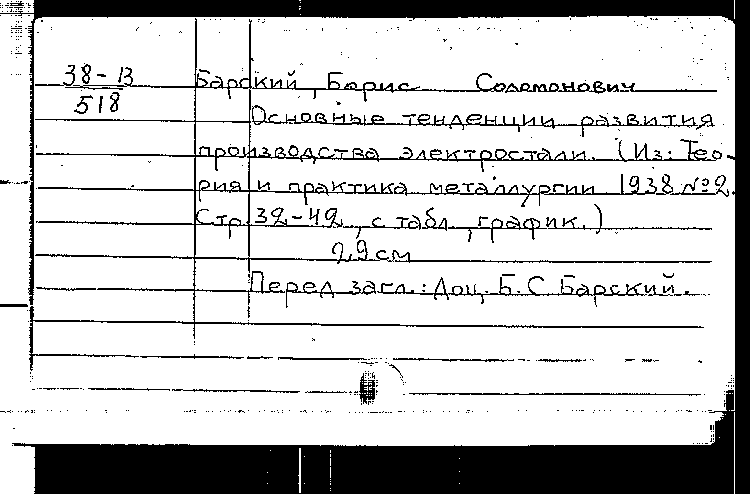 38-В
518
Барский, Борис Соломонович
Основные тенденции развития
производства электростали. (Из: Тео-
рия и практика металлургии 1938 №2.
Стр. 32-42, с табл, график.)
29 см
Перед загл.: Доц. Б. С Барский.